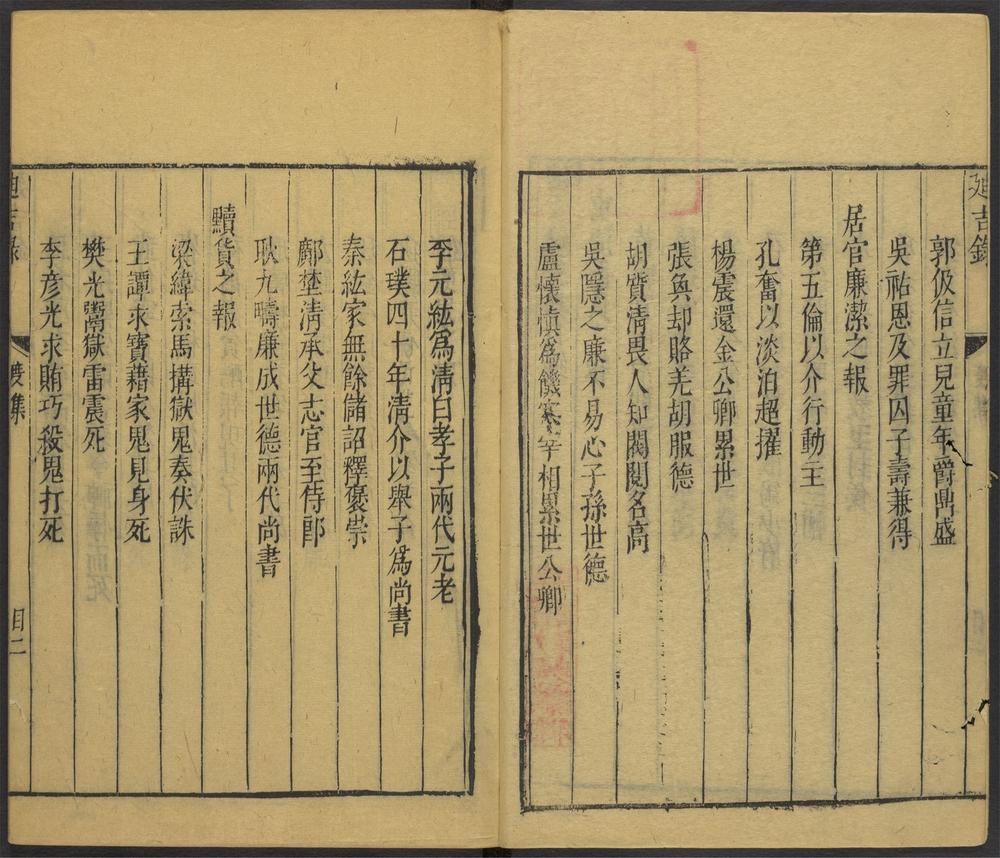 廸吉錄
郭伋信立兒童年爵鼎盛
吳祐恩及罪囚子壽兼得
居官廉潔之報
第五倫以介行動主
孔奮以淡泊超擢
楊震還金公卿累世
張奐却賂羌胡服德
胡質清畏人知閥閱名高
吳隱之廉不易心子孫世德
盧懷慎爲饑寒宰相累世公卿
李元紘爲清白孝子兩代元老
石璞四十年清介以舉子爲尚書
秦紘家無餘儲詔釋褒崇
鄺埜清承父志官至侍郎
耿九疇廉成世德兩代尚書
黷貨之報
梁緯索馬搆獄鬼奏伏誅
王譚求寶藉家鬼見身死
樊光鬻獄雷震死
李彦光求賄巧殺鬼打死
廸吉錄
集
目二